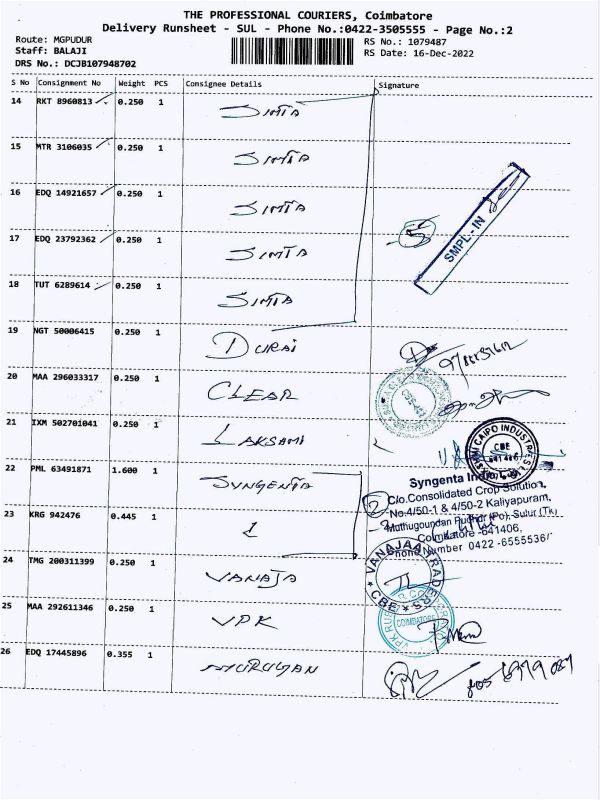 THE PROFESSIONAL COURIERS, Coimbatore
Delivery Runsheet - SUL - Phone No.:0422-3505555 - Page No.:2
Route: MGPUDUR
RS No.: 1079487
Staff: BALAJI
RS Date: 16-Dec-2022
DRS No.: DCJB107948702
S No Consignment No Weight PCS Consignee Details Signature
14 RKT 8960813 0.250 1 SIMTA
15 MTR 3106035 0.250 1 SIMTA
16 EDQ 14921657 0.250 1 SIMTA
17 EDQ 23792362 0.250 1 SIMTA 5
SMPL-IN
18 TUT 6289614 0.250 1 SIMTA
19 NGT 50006415 0.250 1 DURAI
20 MAA 296033317 0.250 1 CLEAR
21 IXM 502701041 0.250 1 LAKSAMI
CAIPO INDUSTRIES
CBE
641 406
22 PML 63491871 1.600 1 SYNGENTA 2
Syngenta India Ltd
C/o.Consolidated Crop Solution,
No.4/50-1 & 4/50-2 Kaliyapuram,
Muthugoundan Pudhur (Po), Sulur (Tk)
Coimbatore -641406,
Phone Number 0422 -6555536/
23 KRG 942476 0.445 1 1
24 TMG 200311399 0.250 1 VANAJA
VANAJAA TRADERS
CBE
25 MAA 292611346 0.250 1 VPK
COIMBATORE
26 EDQ 17445896 0.355 1 MURUGAN